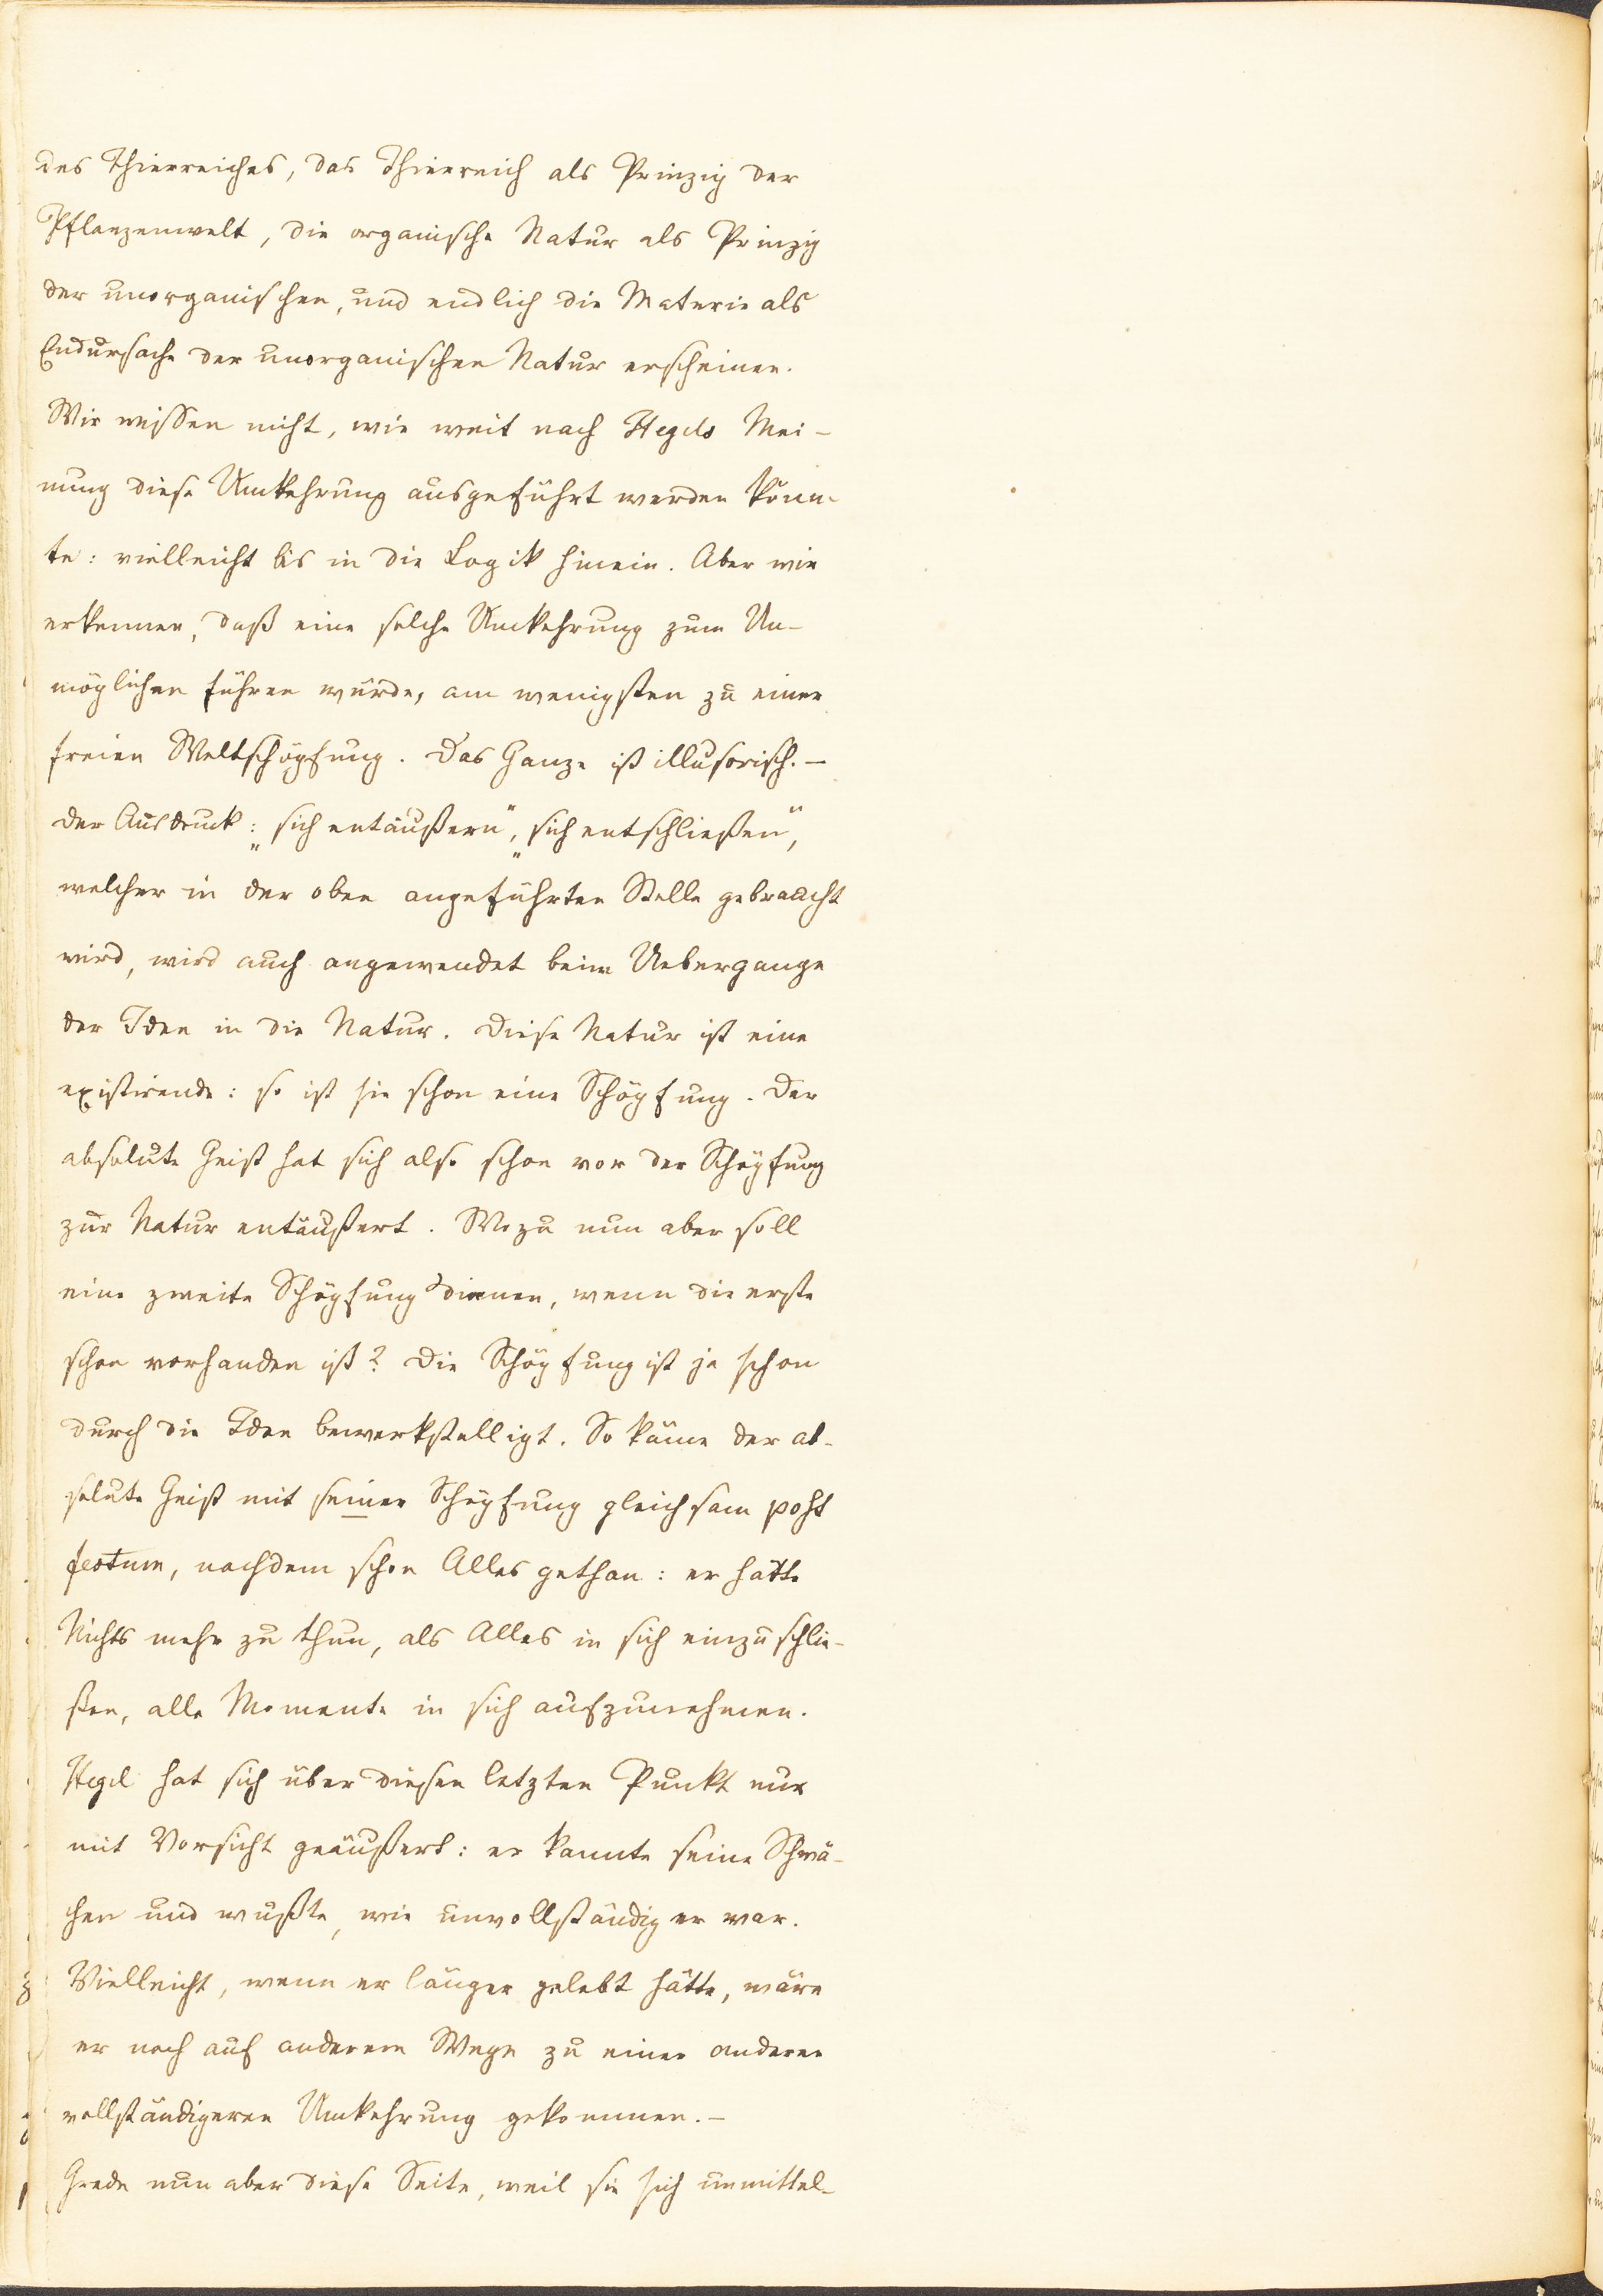 des Thierreiches, das Thierreich als Prinzip der
Pflanzenwelt, die organische Natur als Prinzip
der unorganischen, und endlich die Materie als
Endursache der unorganischen Natur erscheinen.
Wir wissen nicht, wie weit nach Hegels Mei-
nung diese Umkehrung ausgeführt werden könn-
te: vielleicht bis in die Logik hinein. Aber wir
erkennen, daß eine solche Umkehrung zum Un-
möglichen führen würde, am wenigsten zu einer
freien Weltschöpfung. Das Ganze ist illusorisch. –
Der Ausdruck: „sich entäußern“, „sich entschließen“,
welcher in der oben angeführten Stelle gebraucht
wird, wird auch angewendet beim Uebergange
der Idee in die Natur. Diese Natur ist eine
existirende: so ist sie schon eine Schöpfung. Der
absolute Geist hat sich also schon vor der Schöpfung
zur Natur entäußert. Wozu nun aber soll
eine zweite Schöpfung dienen, wenn die erste
schon vorhanden ist? Die Schöpfung ist ja schon
durch die Idee bewerkstelligt. So käme der ab-
solute Geist mit seiner Schöpfung gleichsam post
festum, nachdem schon Alles gethan: er hätte
Nichts mehr zu thun, als Alles in sich einzuschlie-
ßen, alle Momente in sich aufzunehmen.
Hegel hat sich über diesen letzten Punkt nur
mit Vorsicht geäußert: er kannte seine Schwä-
chen und wußte, wie unvollständig er war.
Vielleicht, wenn er länger gelebt hätte, wäre
er noch auf anderem Wege zu einer anderen
vollständigeren Umkehrung gekommen. –
Grade nun aber diese Seite, weil sie sich unmittel-